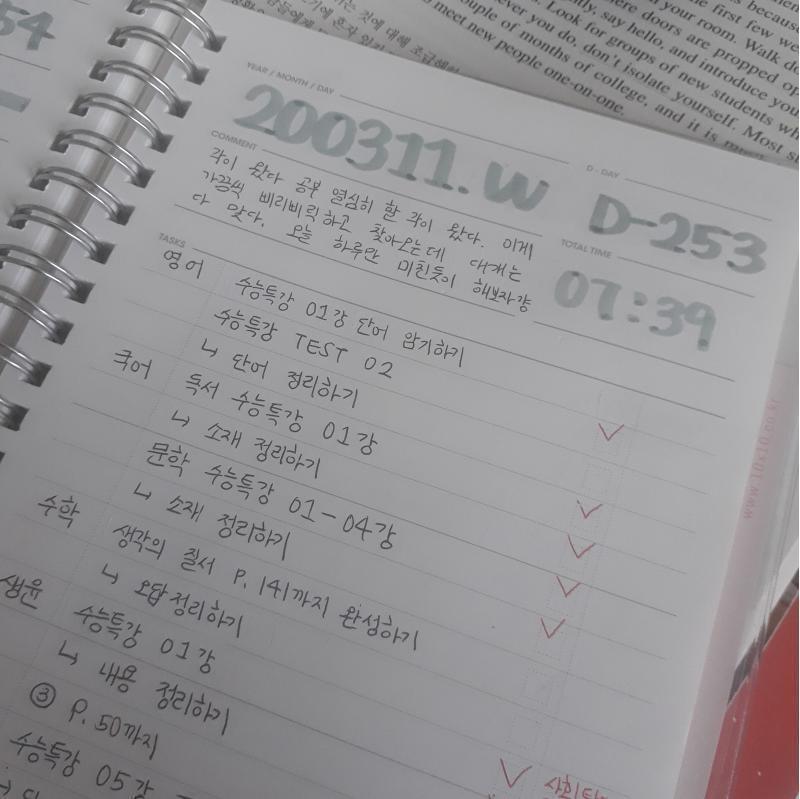 54
YEAR / MONTH / DAY
200311.W
D - DAY
D-253
COMMENT
각이 왔다 공부 열심히 할 각이 왔다. 이게
가끔씩 삐리비릭하고 찾아오는데 대개는
다 맞다. 오늘 하루만 미친듯이 해보자걍
TOTAL TIME
07:39
TASKS
영어
수능특강 01강 단어 암기하기
수능특강 TEST 02
↳ 단어 정리하기
국어
독서 수능특강 01강
↳ 소재 정리하기
문학 수능특강 01-04강
↳ 소재 정리하기
수학
생각의 질서 P.141까지 완성하기
↳ 오답정리하기
생윤
수능특강 01강
↳ 내용 정리하기
③ P.50까지
수능특강 05강
www.10x10.co.kr
the first few we
your room. Walk do
where doors are propped op
ally, say hello, and introduce you
ever you do, don't isolate yourself. Most s
Look for groups of new students wh
couple of months of college, and it is
meet new people one-on-one.